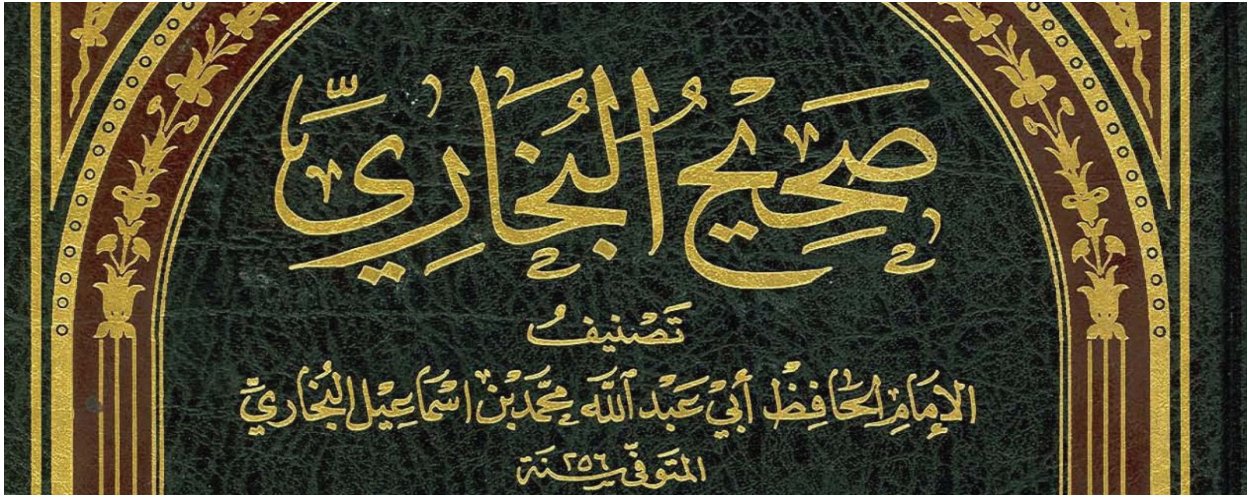 صَحِيْحُ البُخَارِيِّ
تَصْنِيفُ
الإِمَامِ الحَافِظِ أَبِي عَبْدِ ٱللَّه مُحَمَّد بْنِ اسْمَاعِيْل البُخَارِيِّ
المتوفى سنة ٢٥٦